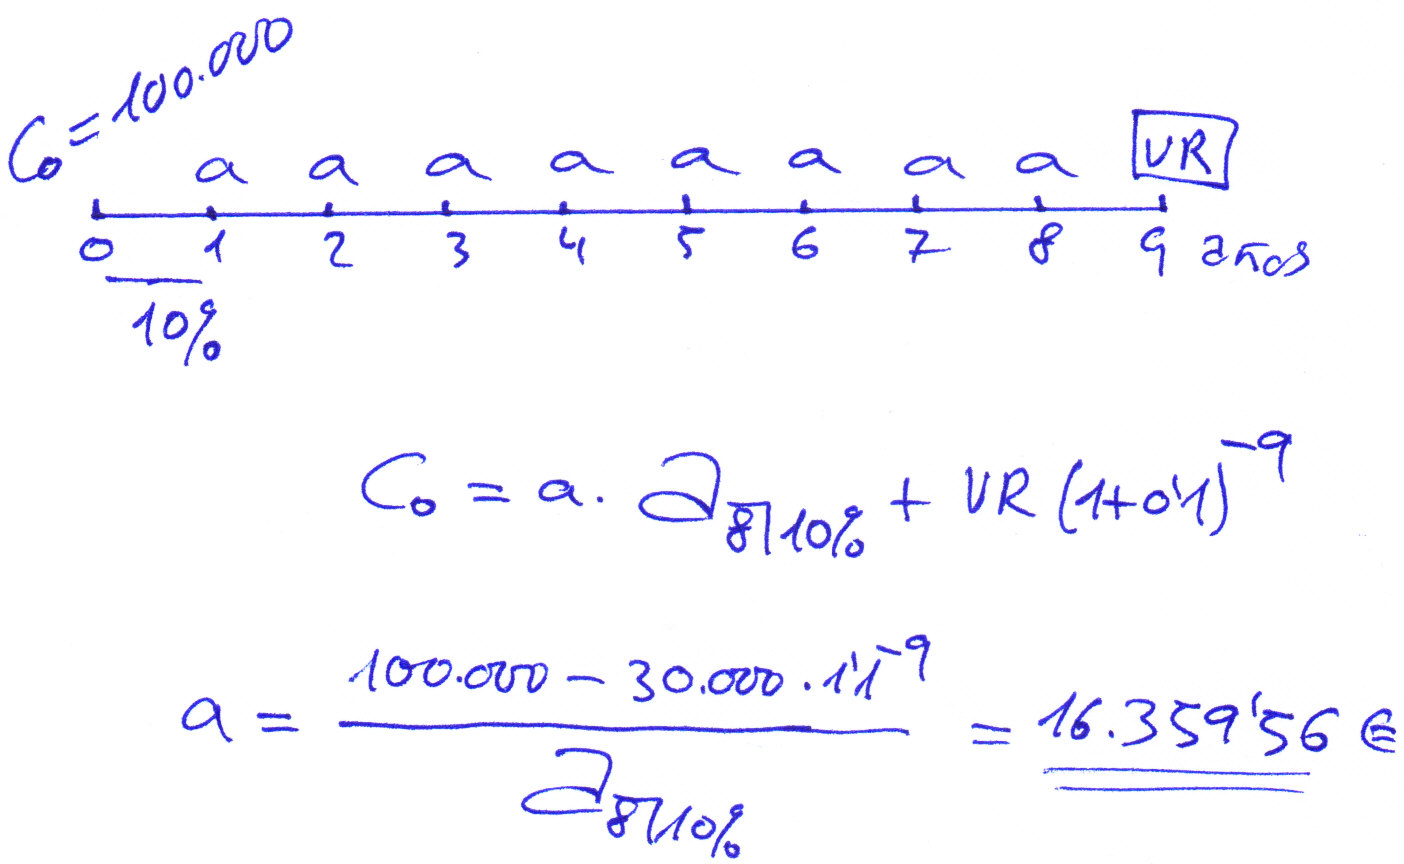 C₀ = 100.000
a a a a a a a a VR
0 1 2 3 4 5 6 7 8 9 años
10%
C₀ = a · a₈̅₎₁₀% + VR (1+0'1)⁻⁹
100.000 − 30.000 · 1'1⁻⁹
a = ――― = 16.359'56 €
a₈̅₎₁₀%